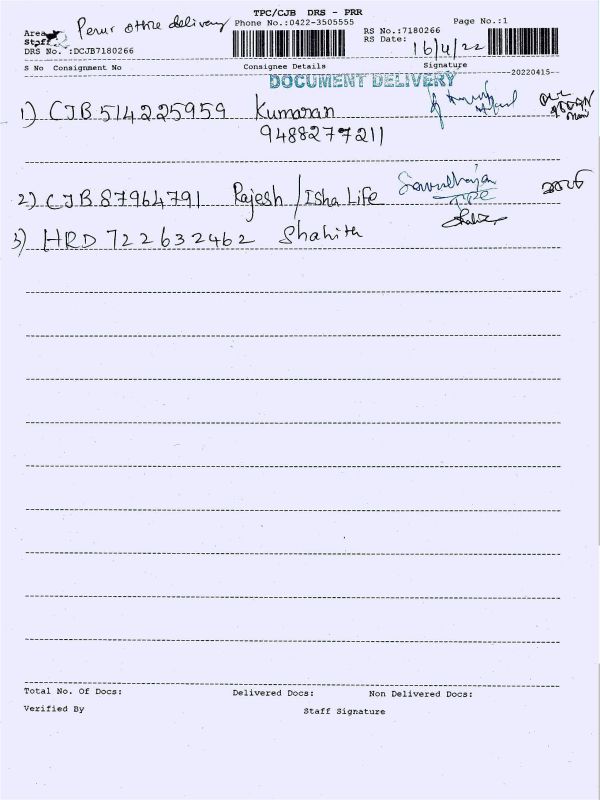 TPC/CJB DRS - PRR
Perur office delivery Phone No.:0422-3505555 Page No.:1
Area
Staff
RS No.:7180266
RS Date: 16/4/22
DRS No. :DCJB7180266
S No Consignment No Consignee Details Signature
20220415
DOCUMENT DELIVERY
1) CJB 514225959 Kumaran
9488277211
2) CJB 87964791 Rajesh / Isha Life
3) HRD 722632462 Shahith
Total No. Of Docs: Delivered Docs: Non Delivered Docs:
Verified By Staff Signature